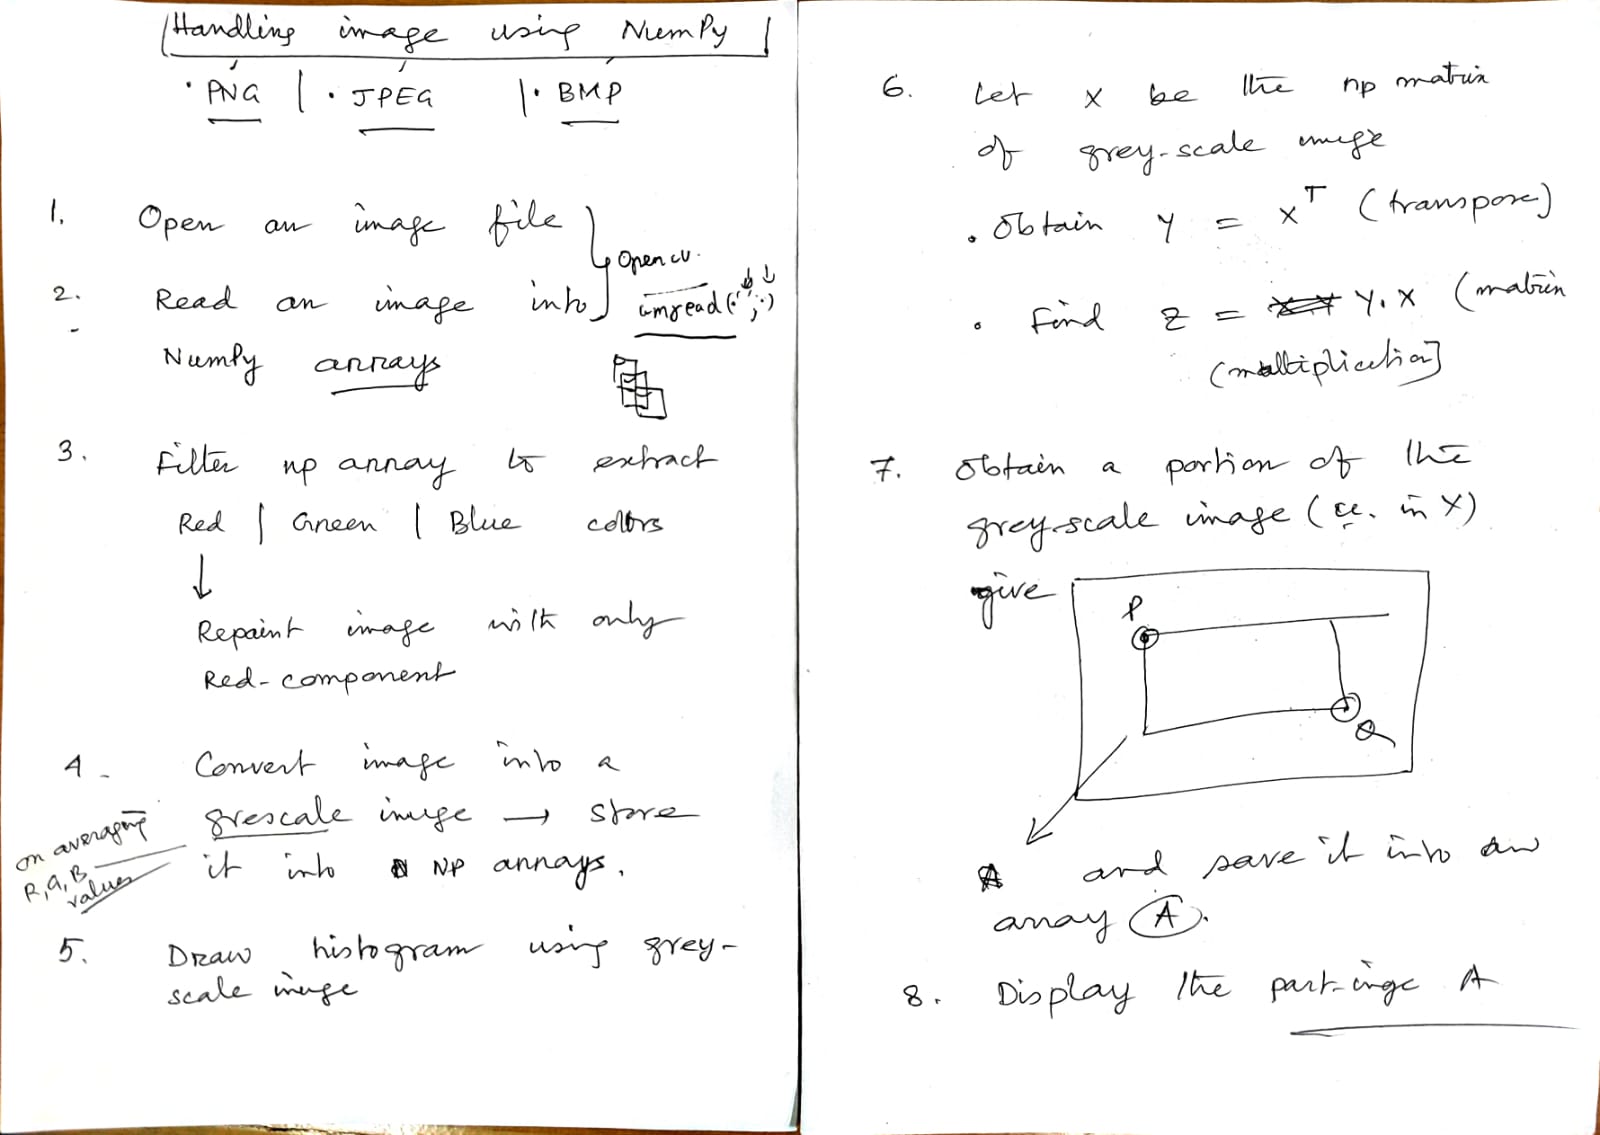 Handling image using NumPy
· PNG | · JPEG | · BMP
1. Open an image file
Opencv.
2. Read an image into
imread(' ', ·)
NumPy arrays
3. Filter np array to extract
Red | Green | Blue colors
Repaint image with only
Red-component
4. Convert image into a
grescale image → store
it into NP arrays.
on averaging
R, G, B
values
5. Draw histogram using grey-
scale image
6. Let X be the np matrix
of grey-scale image
. Obtain Y = X^T (transpose)
. Find Z = Y.X (matrix
(multiplication)
7. Obtain a portion of the
grey-scale image (ie. in X)
give
P
Q
and save it into an
array A.
8. Display the part-image A